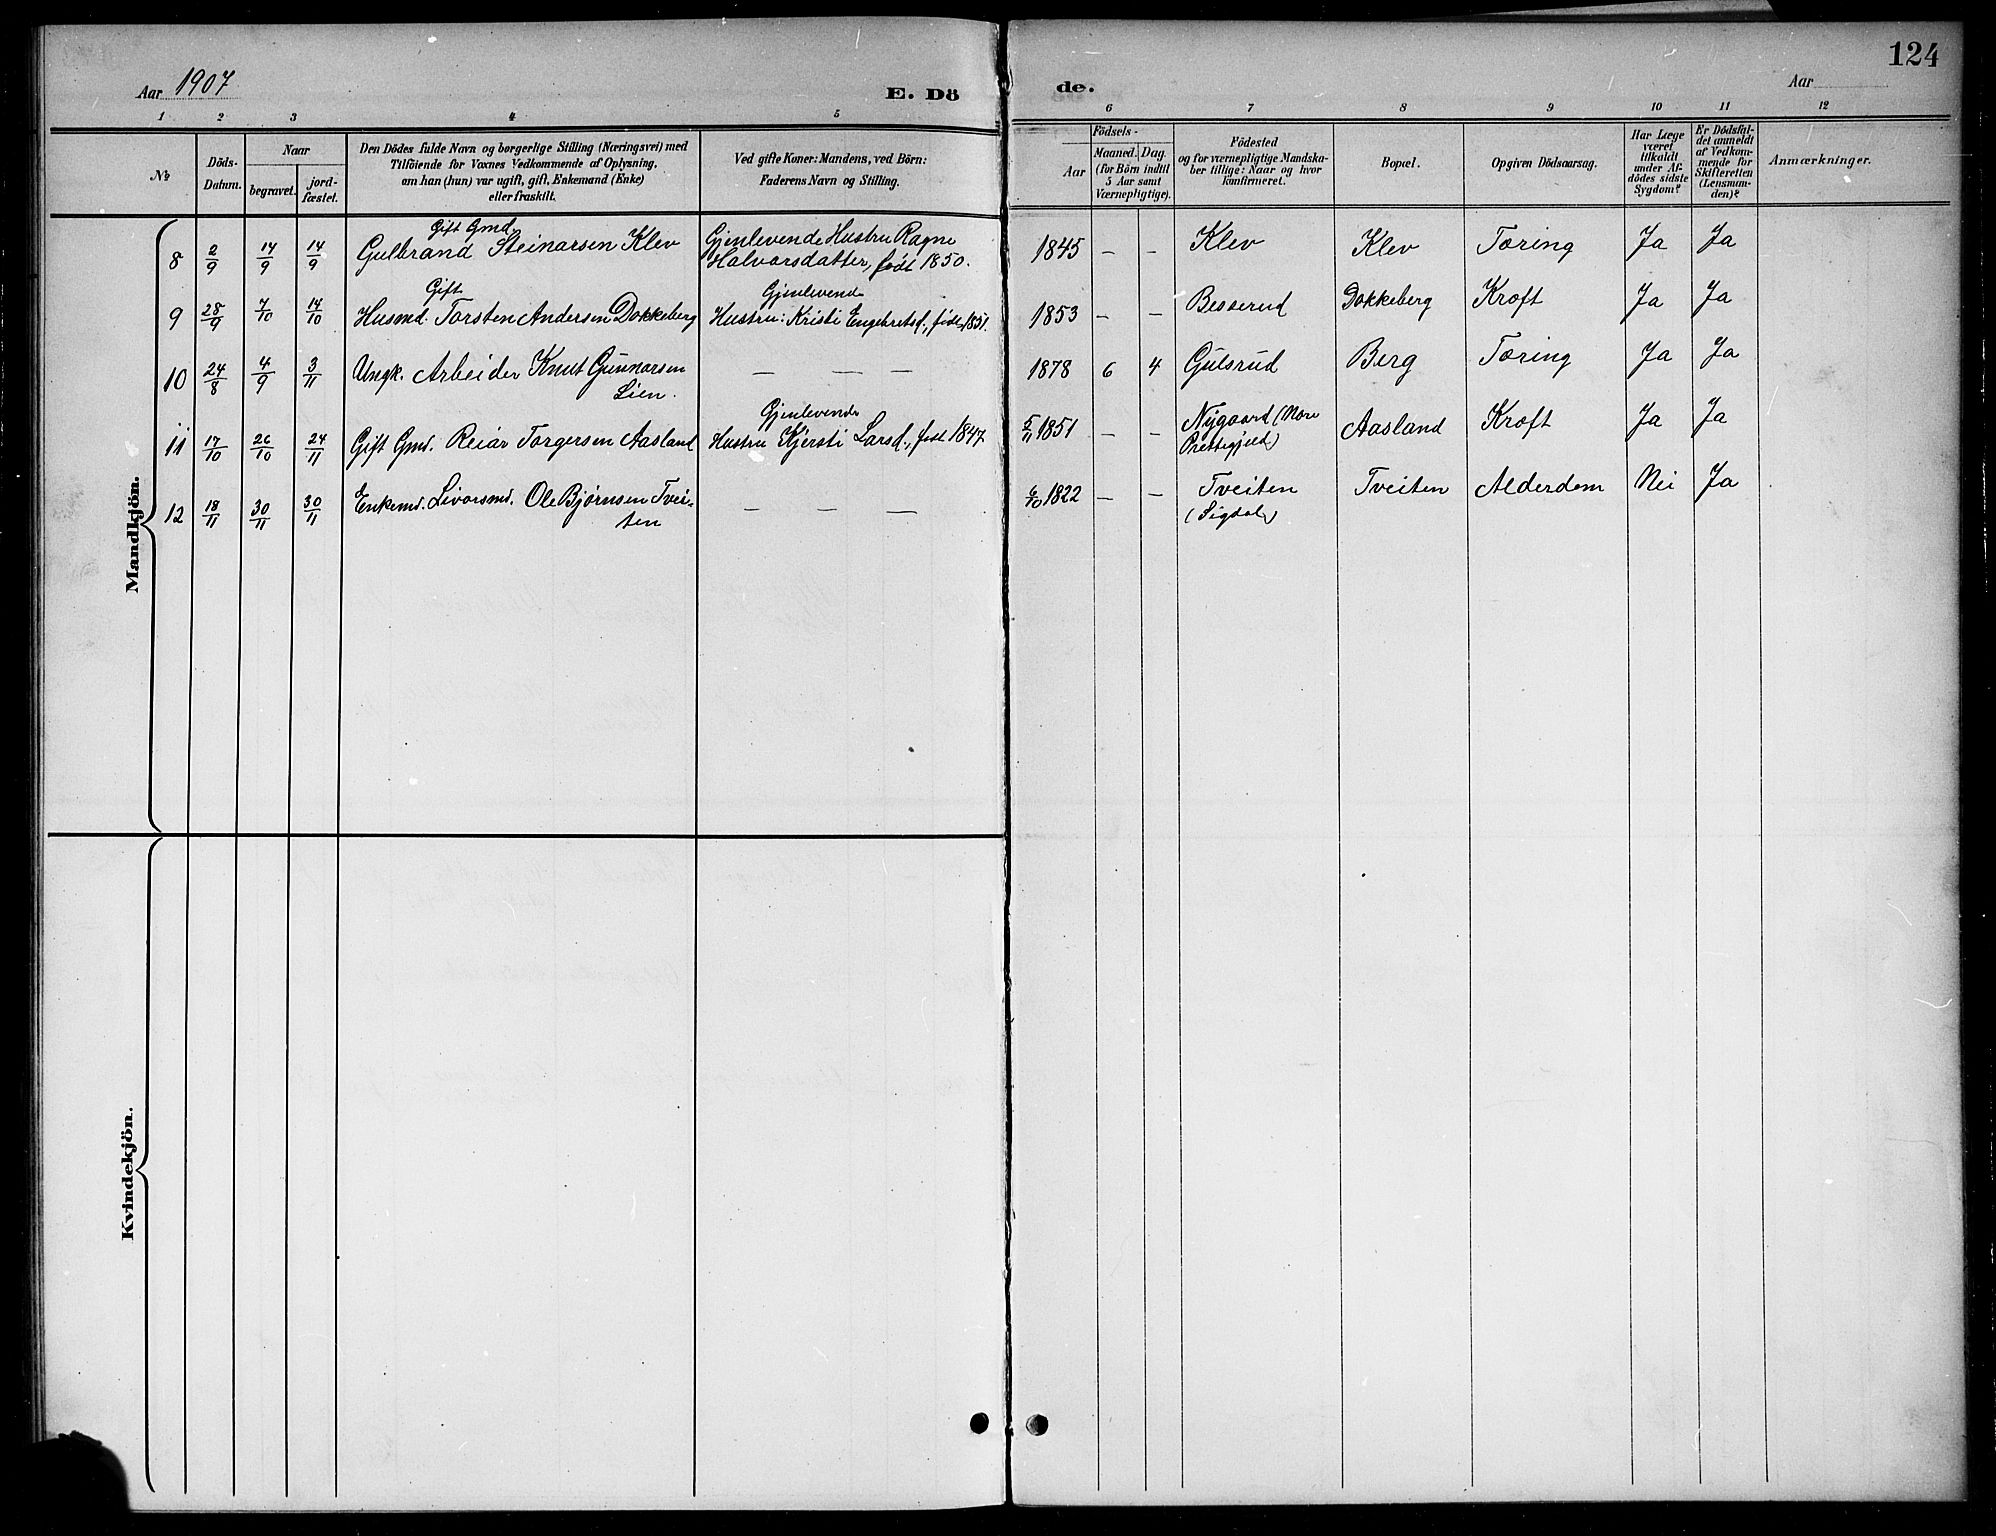 124
Aar 1907
E. Dö
de.
Aar
1 2 3 4 5 6 7 8 9 10 11 12
No
Döds-
Datum.
Naar
begravet.
jord-
fæstet.
Den Dödes fulde Navn og borgerlige Stilling (Næringsvei) med
Tilföiende for Voxnes Vedkommende af Oplysning,
om han (hun) var ugift, gift, Enkemand (Enke)
eller fraskilt.
Ved gifte Koner: Mandens, ved Börn:
Faderens Navn og Stilling.
Födsels-
Aar
Maaned. Dag.
(for Börn indtil
5 Aar samt
Værnepligtige).
Födested
og for værnepligtige Mandska-
ber tillige: Naar og hvor
konfirmeret.
Bopæl.
Opgiven Dödsaarsag.
Har Læge
været
tilkaldt
under Af-
dödes sidste
Sygdom?
Er Dödsfal-
det anmeldt
af Vedkom-
mende for
Skifteretten
(Lensman-
den)?
Anmærkninger.
Mandkjön.
Gift Gmd.
8 2/9 14/9 14/9 Gulbrand Steinarsen Klev Gjenlevende Hustru Ragne 1845 – – Klev Klev Tæring Ja Ja
Halvorsdatter, født 1850.
Gift Gjenlevend
9 28/9 7/10 14/10 Husmd. Torsten Andersen Dokkeberg Hustru: Kristi Engebretsd., født 1851. 1853 – – Besserud Dokkeberg Kræft Ja Ja
10 24/8 4/9 3/11 Ungk. Arbeider Knut Gunnarsen — — — 1878 6 4 Gulsrud Berg Tæring Ja Ja
Lien.
Gjenlevende
11 17/10 26/10 24/11 Gift Gmd. Reiar Torgersen Aasland Hustru Kjersti Larsd., født 1847 1851 – – Nygaard (Nore Aasland Kræft Ja Ja
Prestegjeld)
12 18/11 30/11 30/11 Enkemd. Livørsmd. Ole Bjørnsen Tvei- — — — 6/10 1822 – – Tveiten Tveiten Alderdom Nei Ja
ten (Sigdal)
Kvindekjön.